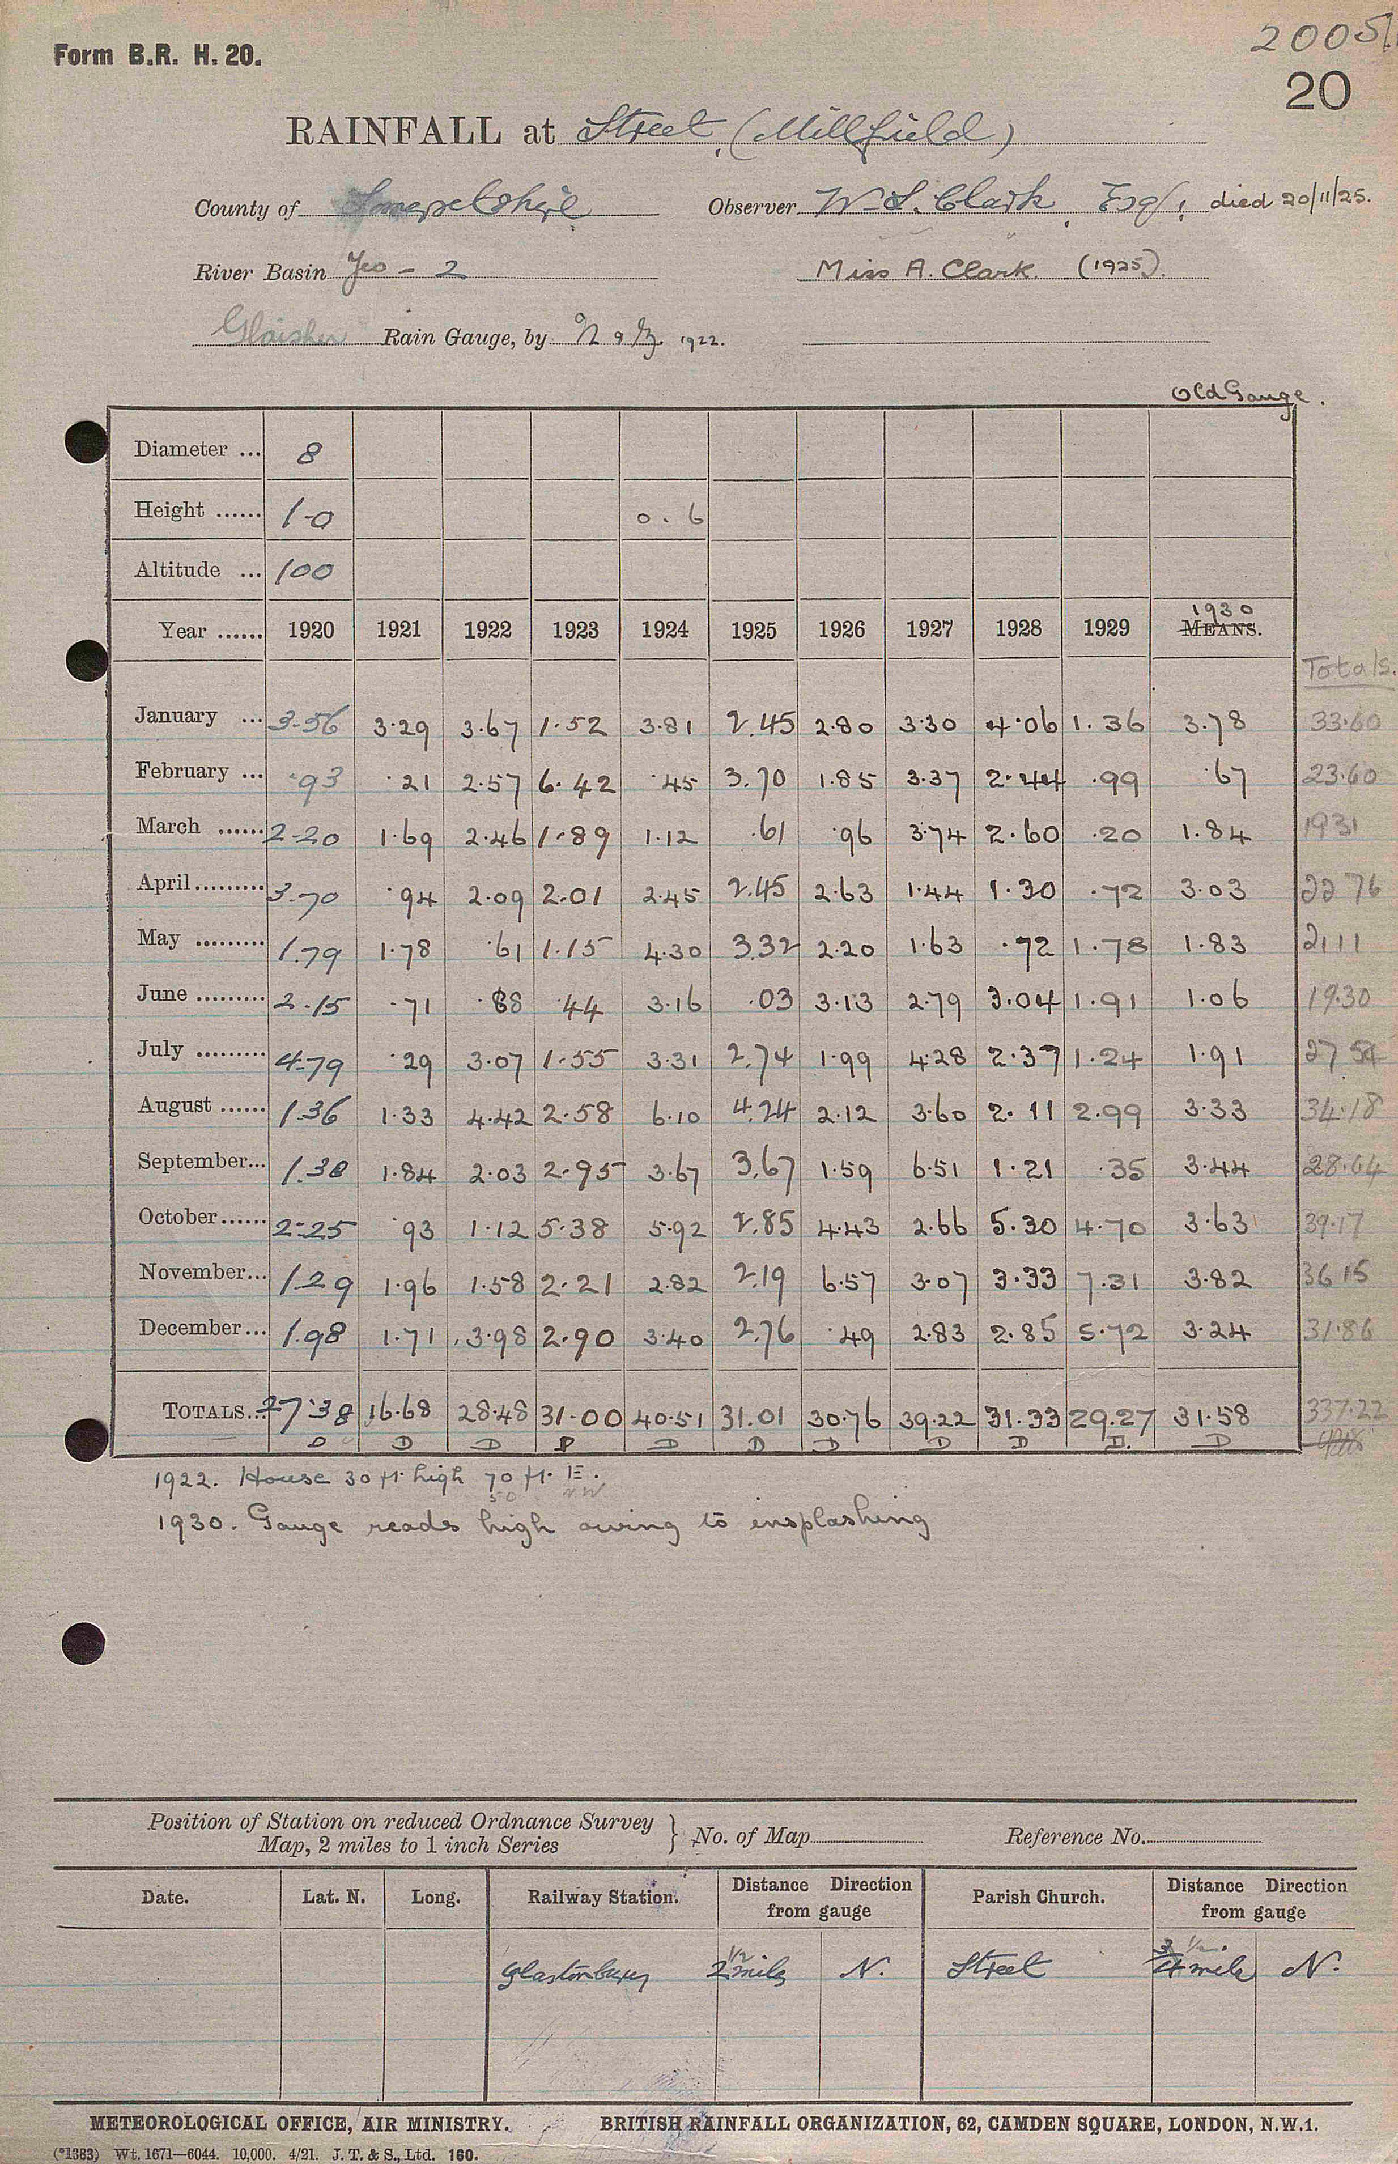 Form B.R. H. 20.
2005/1
20
RAINFALL at Street, (Millfield)
County of Somersetshire Observer W. S. Clark, Esq, died 20/11/25.
River Basin Yeo - 2 Miss A. Clark. (1925).
Glaisher Rain Gauge, by N & Z 1922.
Old Gauge.
Diameter ... 8
Height ...... 1-0 0.6
Altitude ... 100
Year ...... 1920 1921 1922 1923 1924 1925 1926 1927 1928 1929 1930 MEANS.
Totals.
January ... 3.56 3.29 3.67 1.52 3.81 2.45 2.80 3.30 4.06 1.36 3.78 33.60
February ... .93 .21 2.57 6.42 .45 3.70 1.85 3.37 2.44 .99 .67 23.60
March ...... 2.20 1.69 2.46 1.89 1.12 .61 .96 3.74 2.60 .20 1.84 1931
April......... 3.70 .94 2.09 2.01 2.45 2.45 2.63 1.44 1.30 .72 3.03 22 76
May ......... 1.79 1.78 .61 1.15 4.30 3.32 2.20 1.63 .72 1.78 1.83 21 11
June ......... 2.15 .71 .88 .44 3.16 .03 3.13 2.79 3.04 1.91 1.06 19.30
July ......... 4.79 .29 3.07 1.55 3.31 2.74 1.99 4.28 2.37 1.24 1.91 27 54
August ...... 1.36 1.33 4.42 2.58 6.10 4.24 2.12 3.60 2.11 2.99 3.33 34.18
September... 1.38 1.84 2.03 2.95 3.67 3.67 1.59 6.51 1.21 .35 3.44 28.64
October...... 2.25 .93 1.12 5.38 5.92 2.85 4.43 2.66 5.30 4.70 3.63 39.17
November... 1.29 1.96 1.58 2.21 2.82 2.19 6.57 3.07 3.33 7.31 3.82 36 15
December... 1.98 1.71 3.98 2.90 3.40 2.76 .49 2.83 2.85 5.72 3.24 31.86
TOTALS... 27.38 16.68 28.48 31.00 40.51 31.01 30.76 39.22 31.33 29.27 31.58 337.22
D D D D D D D D D D. D
1922. House 30 ft. high 70 ft. E.
50 NW
1930. Gauge reads high owing to insplashing
Position of Station on reduced Ordnance Survey Map, 2 miles to 1 inch Series } No. of Map Reference No.
Date. Lat. N. Long. Railway Station. Distance Direction from gauge Parish Church. Distance Direction from gauge
Glastonbury 2 1/2 miles N. Street 3/4 1/2 mile N.
METEOROLOGICAL OFFICE, AIR MINISTRY. BRITISH RAINFALL ORGANIZATION, 62, CAMDEN SQUARE, LONDON, N.W.1.
(*1383) Wt. 1671—6044. 10,000. 4/21. J. T. & S., Ltd. 160.